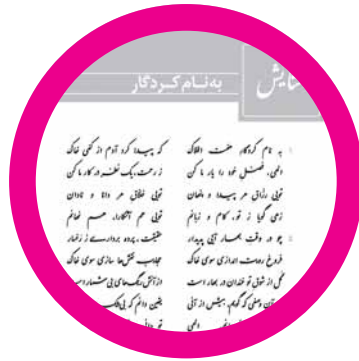 ستایش
به نام کردگار
۱ به نام کردگار هفت افلاک که پیدا کرد آدم از کفی خاک
الهی، فضل خود را یار ما کن ز رحمت، یک نظر در کار ما کن
تویی رزّاق هر پیدا و پنهان تویی خلّاق هر دانا و نادان
زهی گویا ز تو، کام و زبانم تویی هم آشکارا، هم نهانم
۵ چو در وقت بهار آیی پدیدار حقیقت، پرده برداری ز رخسار
فروغ رویت اندازی سوی خاک عجایب نقش‌ها سازی سوی خاک
گل از شوق تو خندان در بهار است از آتش رنگ‌های بی‌شمار است
آن وصفی که گویم، بیش از آنی یقین دانم که بی‌شک
الهی تو دانی